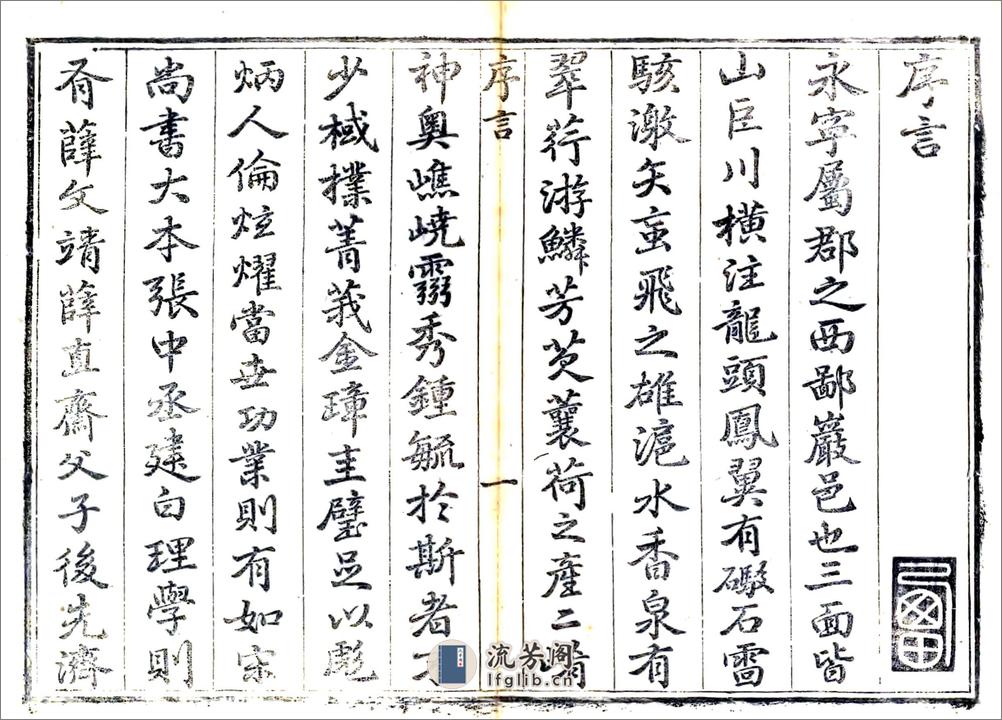 序言
永寧屬郡之西鄙巖邑也三面皆
山巨川橫注龍頭鳳翼有礮石雷
駭激矢蝱飛之雄滬水香泉有
翠荇游鱗芳芡蘘荷之產二
序言
一
神奧嶕嶢秀鍾毓於斯者不
少棫樸菁莪金璋圭璧足以彪
炳人倫炫燿當世功業則有如宋
尚書大本張中丞建白理學則
薛文靖薛直齋父子後先濟
流芳阁
lfglib.cn